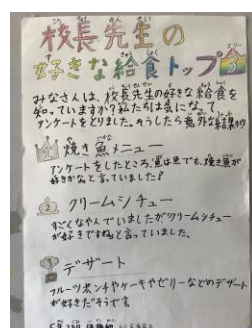 校長先生の
好きな給食トップ3
みなさんは、校長先生の好きな給食を
知っていますか?私たちは気になって
アンケートをとりました。そうしたら意外な結果が
1 焼き魚メニュー
アンケートをしたところ、魚は魚でも、焼き魚が
好きかなと言っていました?
2 クリームシチュー
すごくなやんでいましたがクリームシチュー
が好きですねと言っていました。
3 デザート
フルーツポンチやケーキやゼリーなどのデザート
が好きだそうです